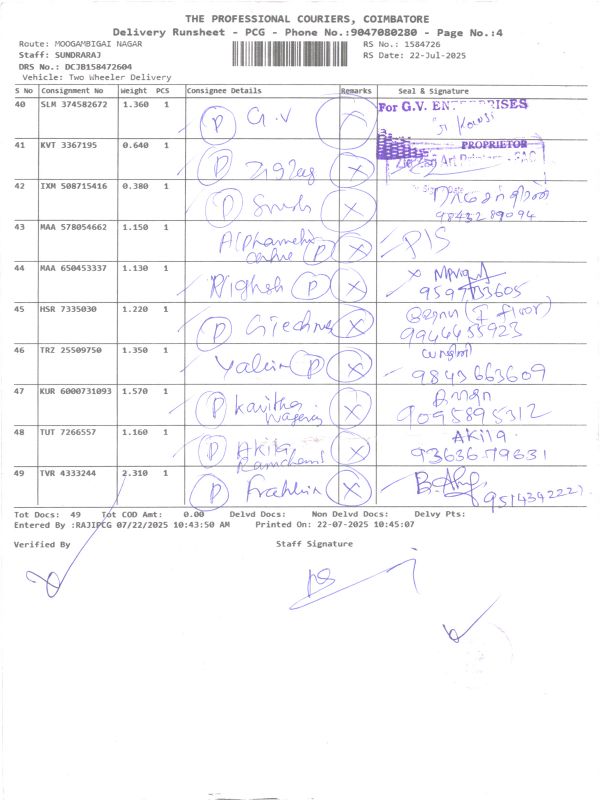 THE PROFESSIONAL COURIERS, COIMBATORE
Delivery Runsheet - PCG - Phone No.:9047080280 - Page No.:4
Route: MOOGAMBIGAI NAGAR RS No.: 1584726
Staff: SUNDRARAJ RS Date: 22-Jul-2025
DRS No.: DCJB158472604
Vehicle: Two Wheeler Delivery
S No Consignment No Weight PCS Consignee Details Remarks Seal & Signature
40 SLM 374582672 1.360 1 P G.V X For G.V. ENTERPRISES
PROPRIETOR
41 KVT 3367195 0.640 1 P Zigzag X Zig Zag Art Printers
42 IXM 508715416 0.380 1 P X
9843289094
43 MAA 578054662 1.150 1 P X P/S
44 MAA 650453337 1.130 1 P X
45 HSR 7335030 1.220 1 P X (I floor)
9944455923
46 TRZ 25509750 1.350 1 P X
9843663609
47 KUR 6000731093 1.570 1 P Kavitha X
9095895312
48 TUT 7266557 1.160 1 P Akila X Akila
49 TVR 4333244 2.310 1 P X
Tot Docs: 49 Tot COD Amt: 0.00 Delvd Docs: Non Delvd Docs: Delvy Pts:
Entered By :RAJIPCG 07/22/2025 10:43:50 AM Printed On: 22-07-2025 10:45:07
Verified By Staff Signature